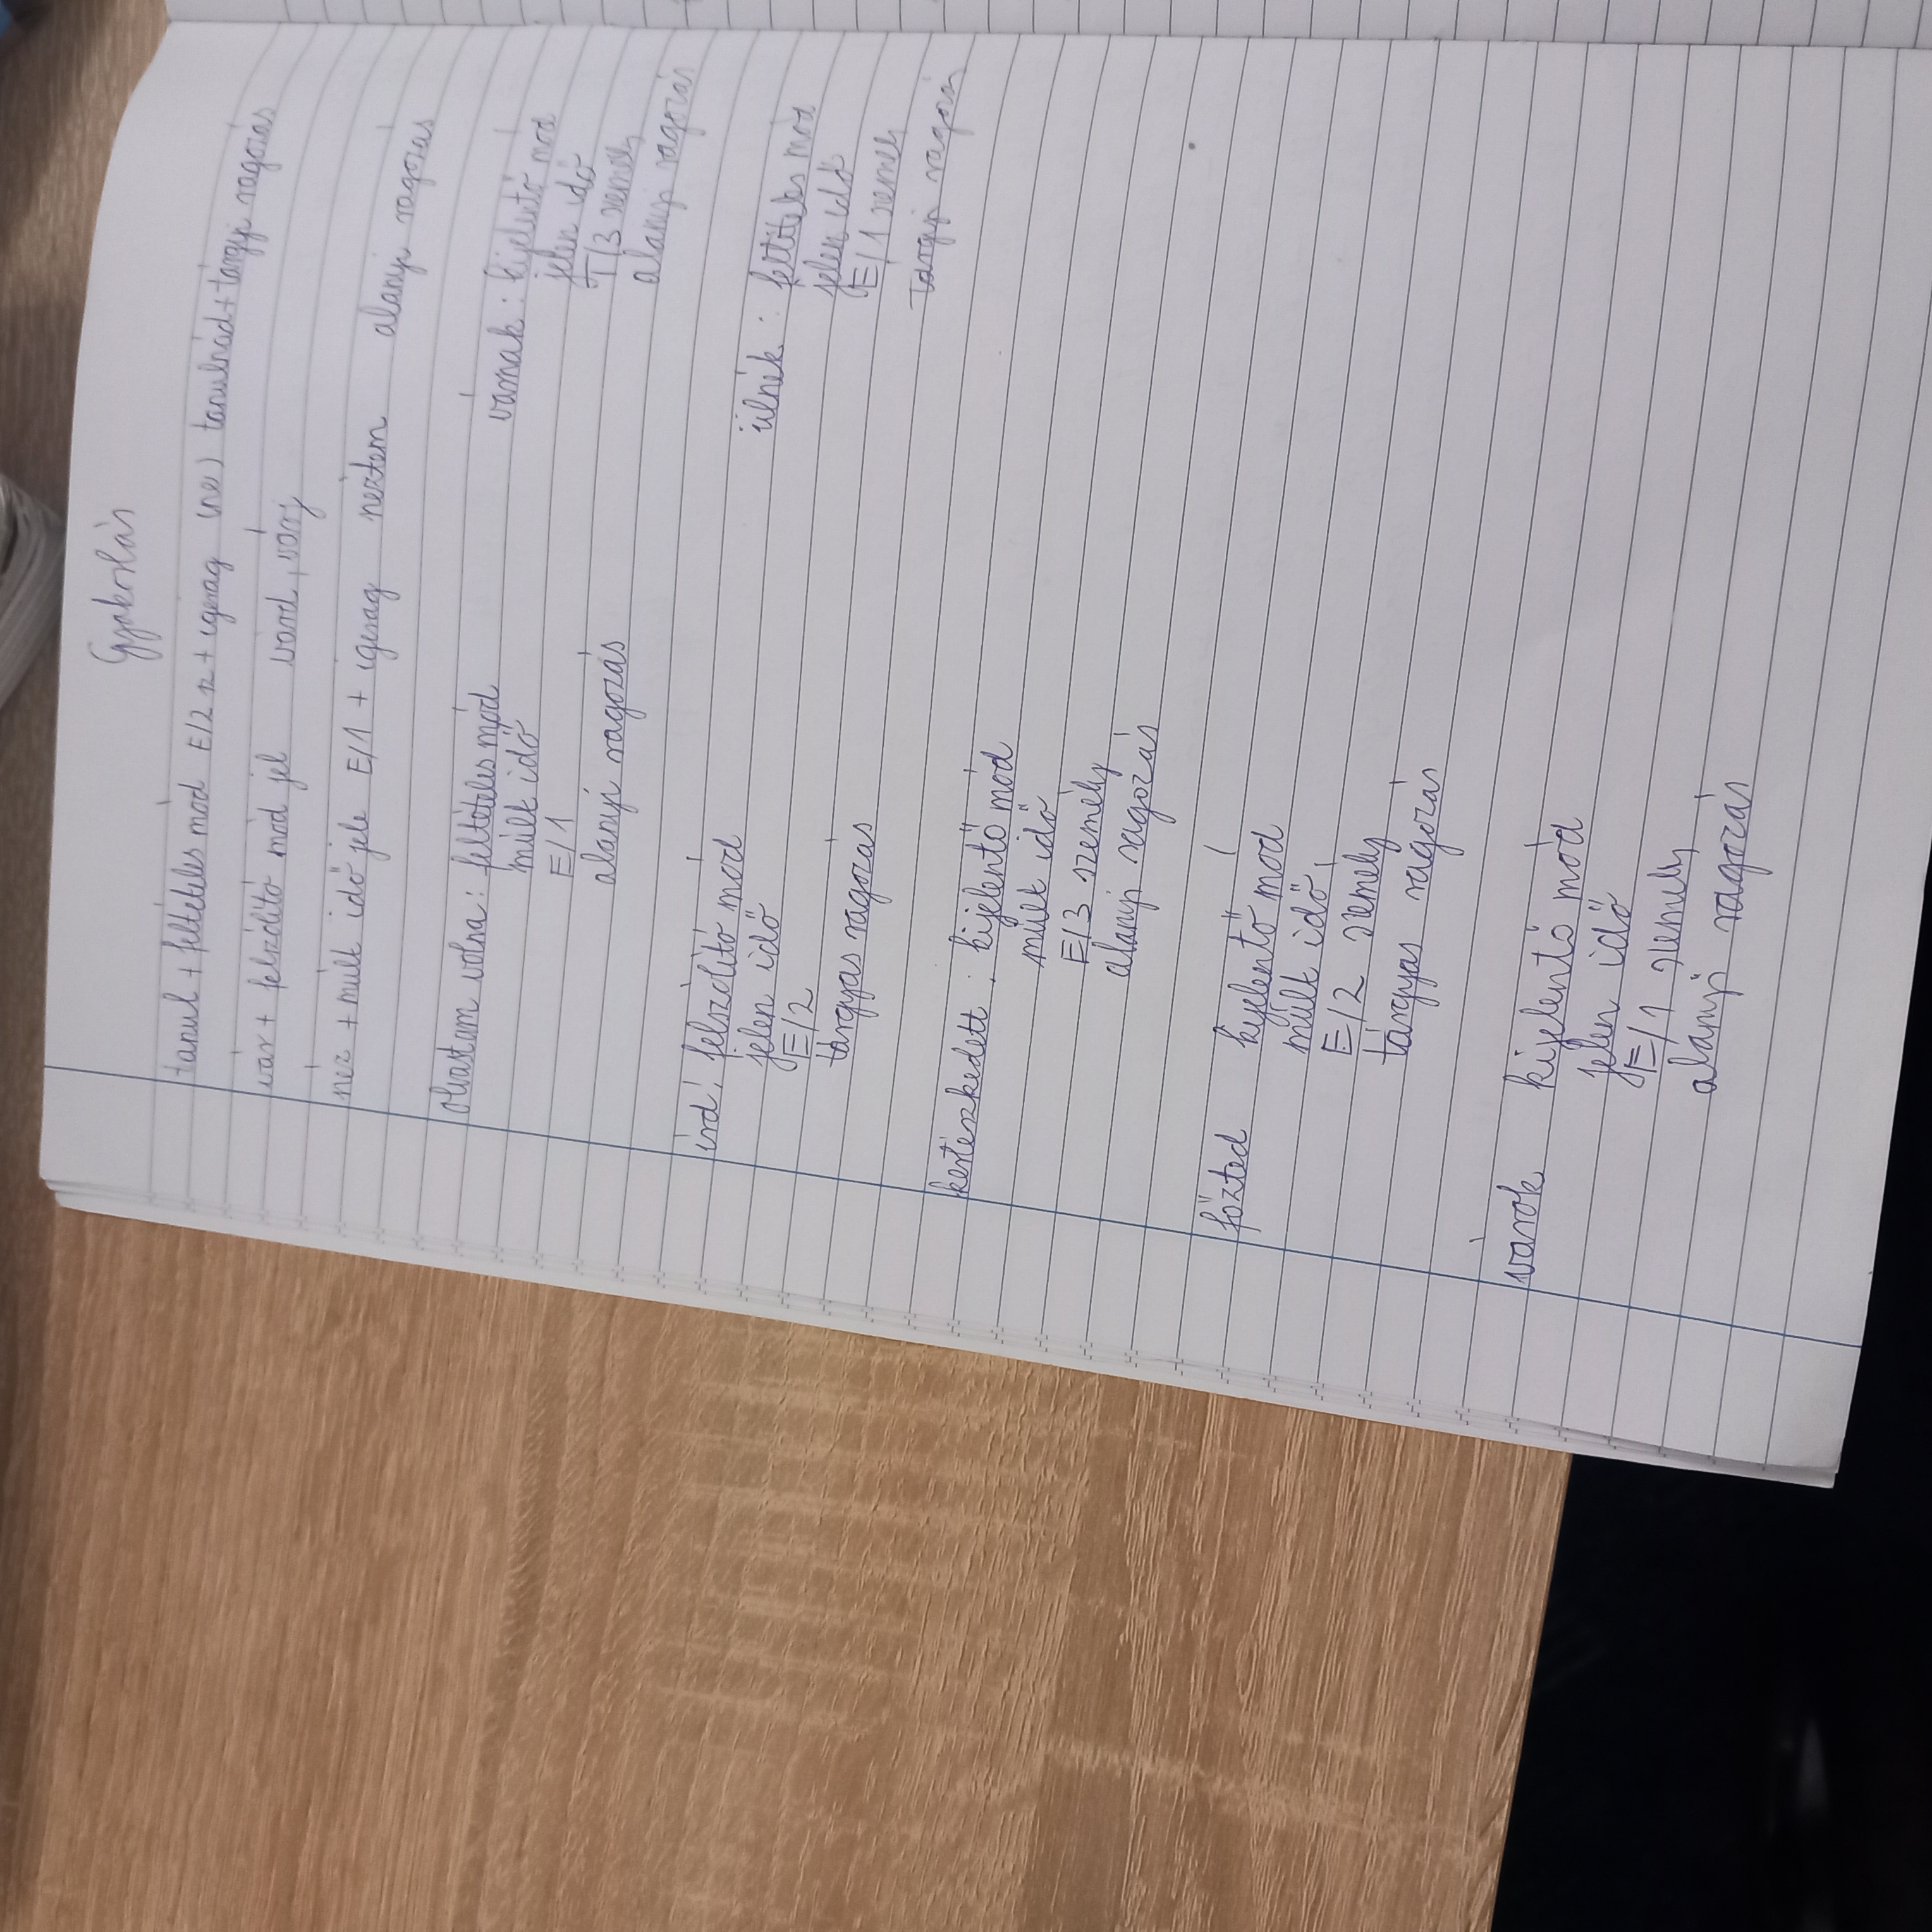 Gyakorlás
tanul + feltételes mód E/2 + igerag tanulnád + tárgyi ragozás
vár + felszólító mód jel várd, várj
néz + múlt idő jele E/1 + igerag néztem alanyi ragozás
olvastam volna: feltételes mód
múlt idő
E/1
alanyi ragozás
várnak: kijelentő mód
jelen idő
T/3 személy
alanyi ragozás
írd: felszólító mód
jelen idő
E/2
tárgyas ragozás
ülnék: feltételes mód
jelen idő
E/1 személy
tárgyi ragozás
kertészkedett: kijelentő mód
múlt idő
E/3 személy
alanyi ragozás
főzted kijelentő mód
múlt idő
E/2 személy
tárgyas ragozás
várok kijelentő mód
jelen idő
E/1 személy
alanyi ragozás